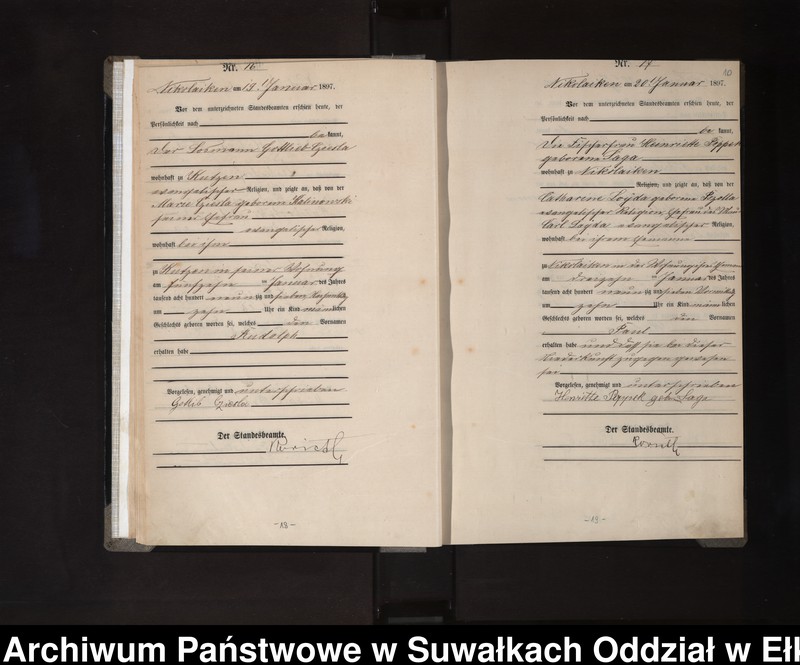 Nr. 16
Nikolaiken am 19ten Januar 1897.
Vor dem unterzeichneten Standesbeamten erschien heute, der
Persönlichkeit nach
be kannt,
Der Gottlieb
wohnhaft zu Kutzen
evangelischer Religion, und zeigte an, daß von der
Marie geborene Kalinowski
seiner Ehefrau
evangelischer Religion,
wohnhaft bei ihm
zu Kutzen in seiner Wohnung
am fünfzehn ten Januar des Jahres
tausend acht hundert neun zig und sieben Vormittag
um zehn Uhr ein Kind männ lichen
Geschlechts geboren worden sei, welches den Vornamen
Rudolph
erhalten habe
Vorgelesen, genehmigt und unterschrieben
Gottlieb
Der Standesbeamte.
- 18 -
Nr. 17
10
Nikolaiken am 20ten Januar 1897.
Vor dem unterzeichneten Standesbeamten erschien heute, der
Persönlichkeit nach
be kannt,
Die Fischerfrau Henriette
geborene Saga
wohnhaft zu Nikolaiken
Religion, und zeigte an, daß von der
Catharine Lojda geborene
evangelischer Religion Ehefrau des
Carl Lojda evangelischer Religion,
wohnhaft bei ihrem Ehemann
zu Nikolaiken in der Wohnung
am dreizehn ten Januar des Jahres
tausend acht hundert neun zig und sieben Vormittag
um zehn Uhr ein Kind männ lichen
Geschlechts geboren worden sei, welches den Vornamen
Paul
erhalten habe und daß sie bei dieser
Niederkunft zugegen gewesen
sei
Vorgelesen, genehmigt und unterschrieben
Henriette geb. Saga
Der Standesbeamte.
- 19 -
Archiwum Państwowe w Suwałkach Oddział w Ełk